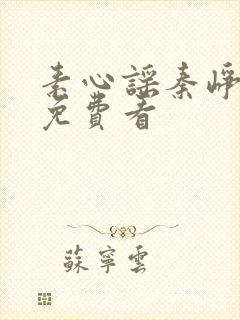 素心謡秦峥
免費看
蘇寧雲